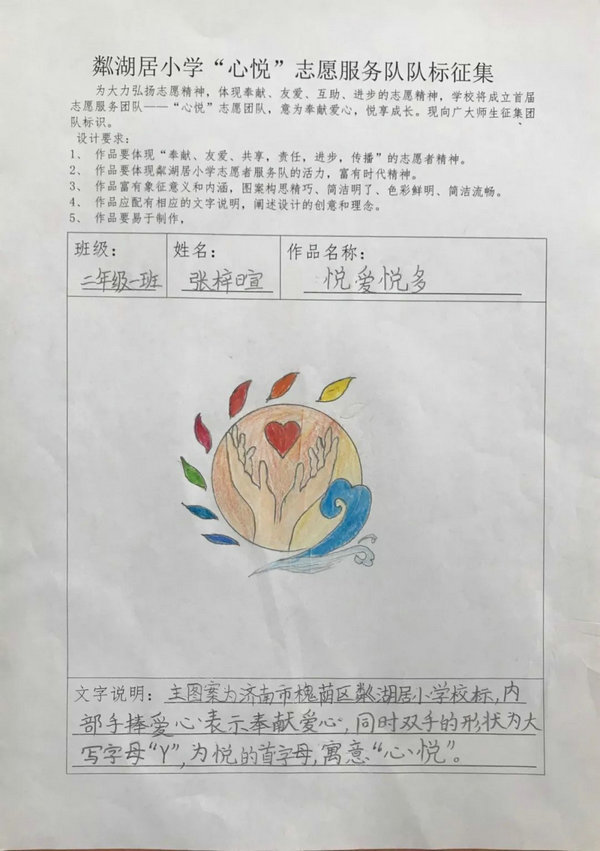 粼湖居小学“心悦”志愿服务队队标征集
为大力弘扬志愿精神，体现奉献、友爱、互助、进步的志愿精神，学校将成立首届
志愿服务团队——“心悦”志愿团队，意为奉献爱心，悦享成长。现向广大师生征集团
队标识。
设计要求：
1、 作品要体现“奉献、友爱、共享，责任，进步，传播”的志愿者精神。
2、 作品要体现粼湖居小学志愿者服务队的活力，富有时代精神。
3、 作品富有象征意义和内涵，图案构思精巧、简洁明了、色彩鲜明、简洁流畅。
4、 作品应配有相应的文字说明，阐述设计的创意和理念。
5、 作品要易于制作，
班级： 姓名： 作品名称：
二年级一班 张梓暄 悦爱悦多
文字说明：主图案为济南市槐荫区粼湖居小学校标，内
部手捧爱心表示奉献爱心，同时双手的形状为大
写字母“Y”，为悦的首字母，寓意“心悦”。